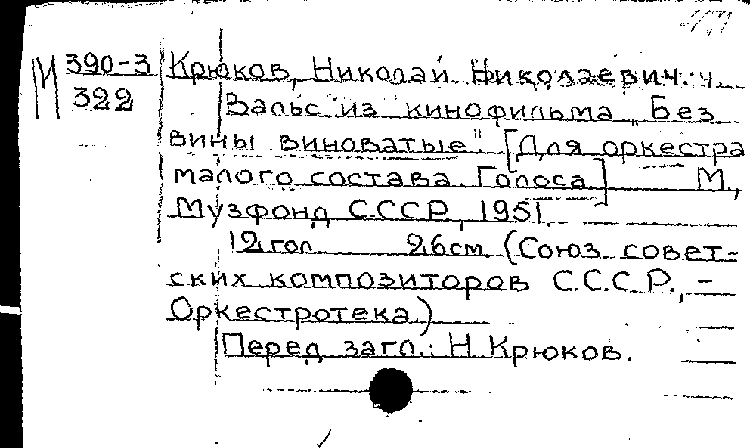 М 390-3 Крюков, Николай Николаевич.
322 Вальс из кинофильма „Без
вины виноватые". [Для оркестра
малого состава. Голоса] М.,
Музфонд СССР, 1951.
12 гол. 26 см. (Союз совет-
ских композиторов С.С.С.Р., -
Оркестротека)
Перед загл.: Н. Крюков.